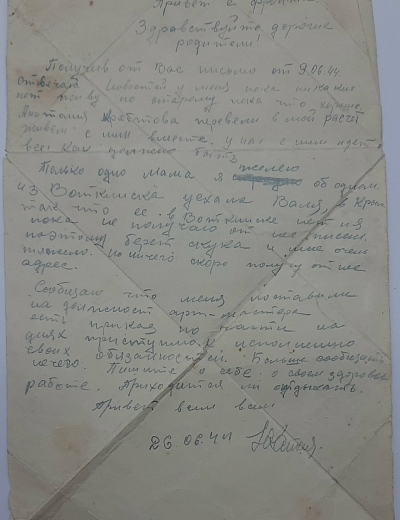 Привет с фронта
Здравствуйте дорогие
родители!
Получив от Вас письмо от 9.06.44
отвечаю. Новостей у меня пока никаких
нет живу по старому пока что хорошо
Анатолия перевели в мой расчет
живем с ним вместе, у нас с ним идет
все как должно быть
Только одно мама я желею об одном.
из Воткинска уехала Валя, в
так что ее в Воткинске нет и я
пока не получаю от нее писем.
поэтому берет скука и мне очень
тяжело. но ничего скоро получу от нее
адрес.
Сообщаю что меня поставили
на должность арт-мастера
есть приказ по части на
днях приступлю к исполнению
своих обязанностей. Больше сообщать
нечего Пишите о себе, о своем здоровье
работе. Приходится ли отдыхать.
Привет всем всем
26.06.44